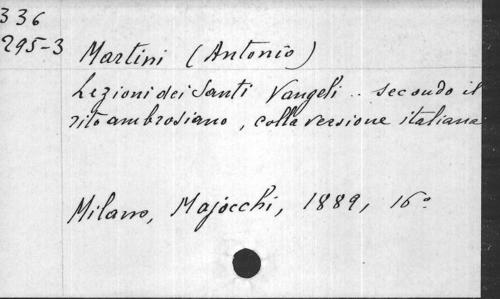 336
295-3
Martini (Antonio)
Lezioni dei Santi Vangeli .. secondo il
rito ambrosiano, colla versione italiana
Milano, Majocchi, 1889, 16º